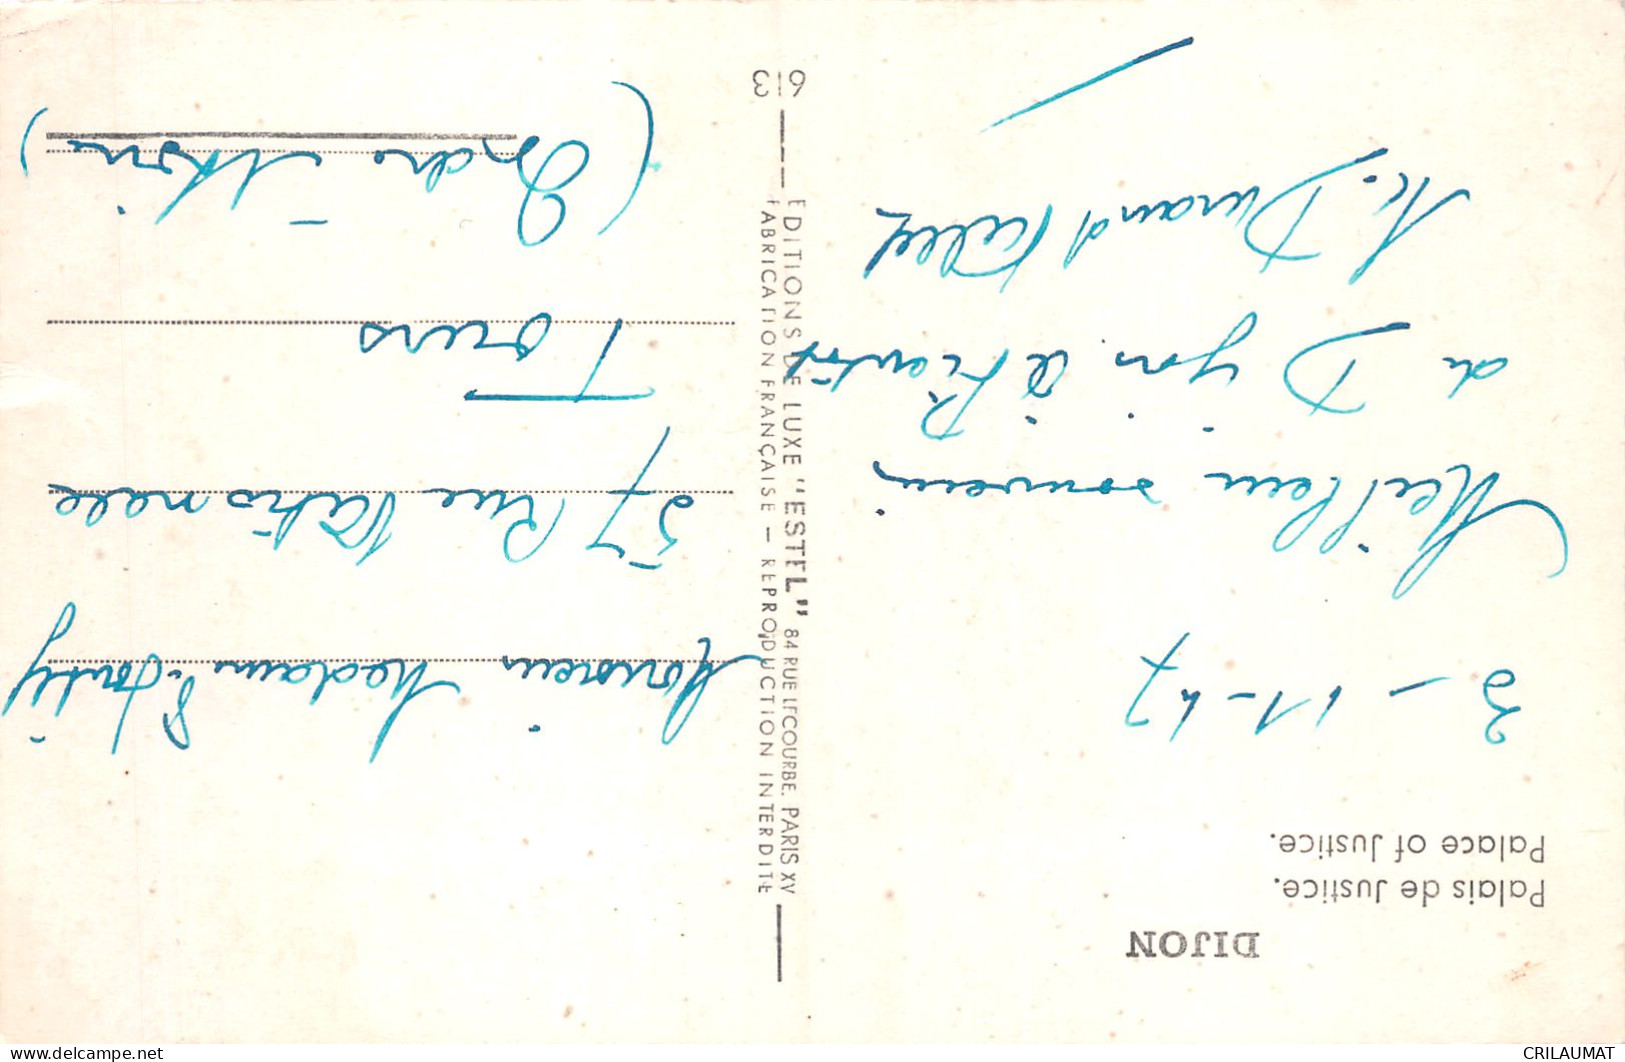 DIJON
Palais de Justice.
Palace of Justice.
3 - 11 - 47
Meilleur souvenir
de Dijon. à Bientôt
M. Durand
EDITIONS DE LUXE "ESTEL" 84 RUE LECOURBE, PARIS XV
FABRICATION FRANÇAISE — REPRODUCTION INTERDITE
6
3
Monsieur Madame
57 Rue Nationale
Tours
(Indre Loire)
CRILAUMAT